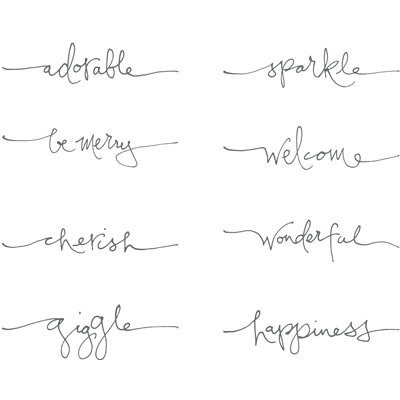 adorable
sparkle
be merry
welcome
cherish
wonderful
giggle
happiness